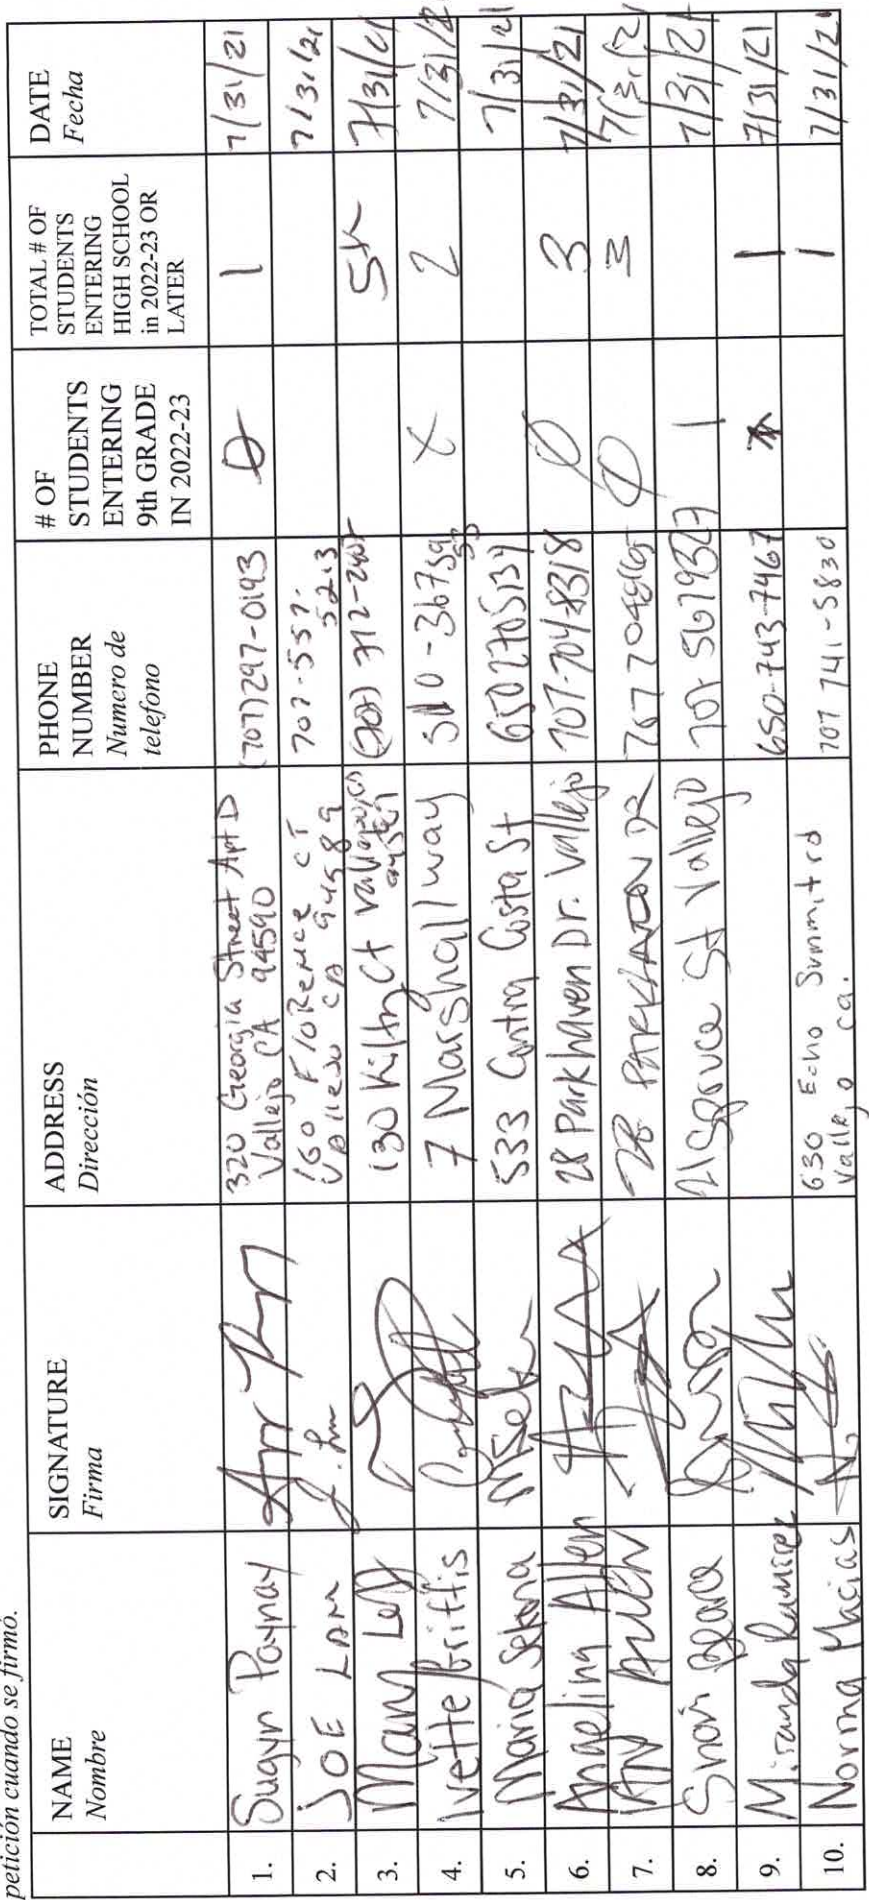 petición cuando se firmó.
NAME
Nombre
SIGNATURE
Firma
ADDRESS
Dirección
PHONE
NUMBER
Numero de
telefono
# OF
STUDENTS
ENTERING
9th GRADE
IN 2022-23
TOTAL # OF
STUDENTS
ENTERING
HIGH SCHOOL
in 2022-23 OR
LATER
DATE
Fecha
1.
Sugyn Paynay
320 Georgia Street Apt D
Vallejo CA 94590
(707)297-0193
0
1
7/31/21
2.
JOE LAM
J. Lam
160 FlORence CT
VAllejo CA 94589
707-557-
5213
7/31/21
3.
Mary
130 Kilty Ct Vallejo, ca
(707) 712-
5K
7/31/21
4.
Ivette Griffis
7 Marshall way
510-36759
53
X
2
7/31/21
5.
Maria Sekona
533 Contra Costa St
6502765139
7/31/21
6.
Angelina Allen
28 Parkhaven Dr. Vallejo
707-704-8318
0
3
7/31/21
7.
Allen
28 PARKHAVEN DR
707704
0
3
7/31/21
8.
Spruce St Vallejo
707 5679327
1
7/31/21
9.
Miranda Ramirez
650-743-7467
1
7/31/21
10.
Norma Macias
630 Echo Summit rd
Vallejo ca.
707 741-5830
1
7/31/21